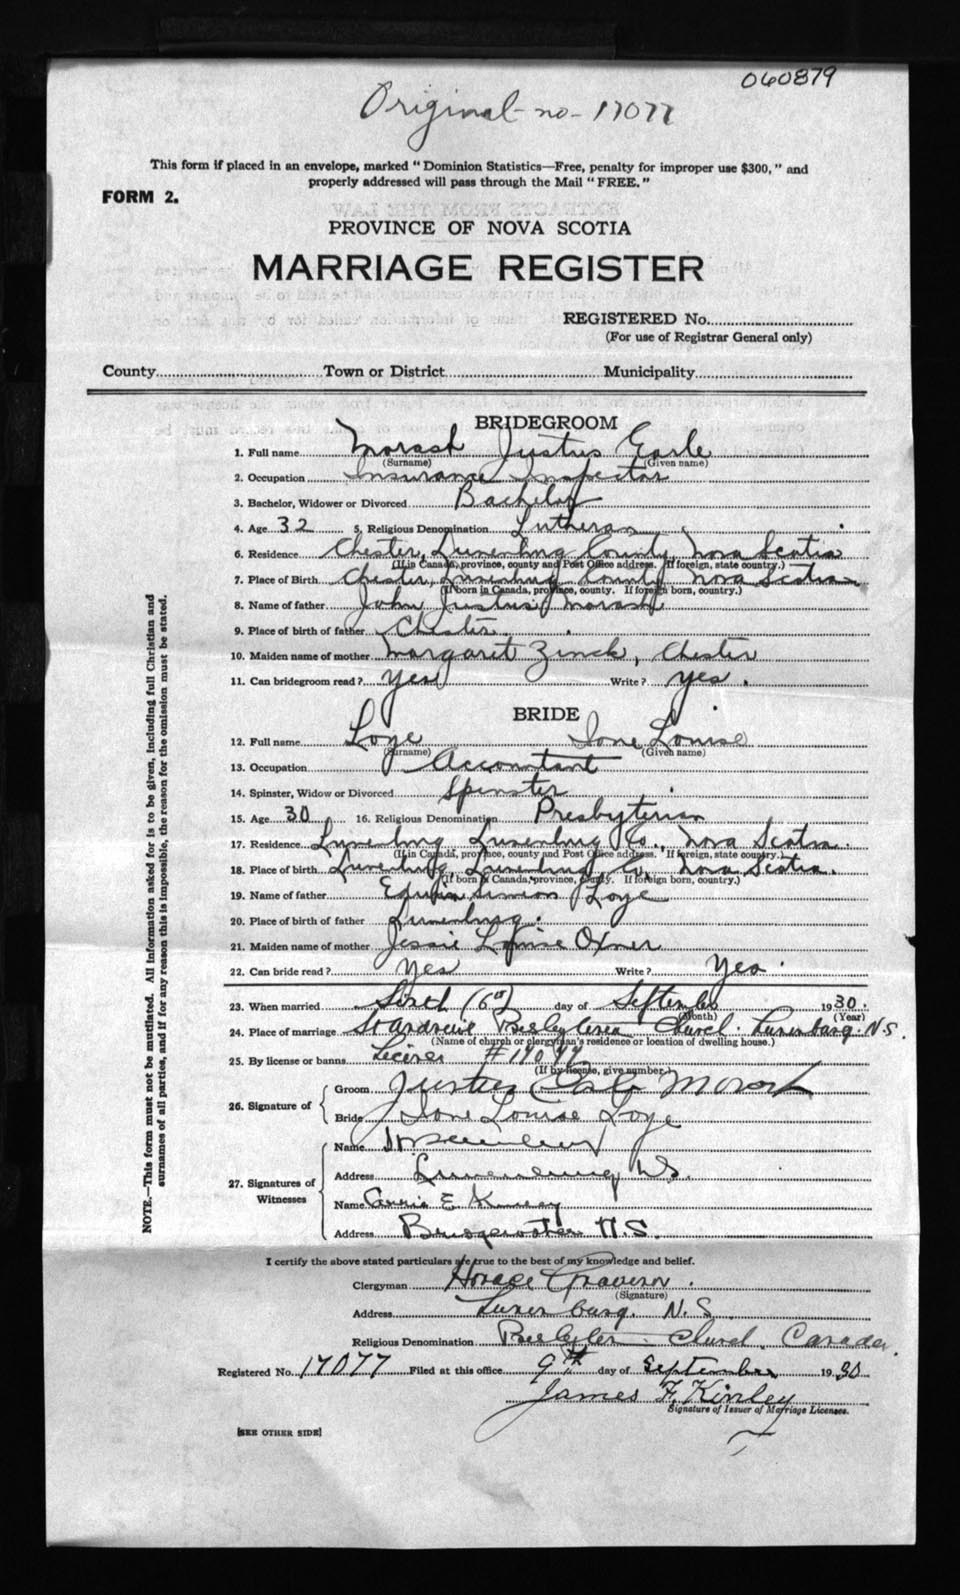 060879
Original - no - 17077
This form if placed in an envelope, marked "Dominion Statistics—Free, penalty for improper use $300," and
properly addressed will pass through the Mail "FREE."
FORM 2.
PROVINCE OF NOVA SCOTIA
MARRIAGE REGISTER
REGISTERED No.
(For use of Registrar General only)
County Town or District Municipality
BRIDEGROOM
1. Full name Morash Justus Earle
(Surname) (Given name)
2. Occupation Insurance Inspector
3. Bachelor, Widower or Divorced Bachelor
4. Age 32 5. Religious Denomination Lutheran
6. Residence Chester, Lunenburg County, Nova Scotia
(If in Canada, province, county and Post Office address. If foreign, state country.)
7. Place of Birth Chester, Lunenburg County Nova Scotia
(If born in Canada, province, county. If foreign born, country.)
8. Name of father John Justus Morash
9. Place of birth of father Chester
10. Maiden name of mother Margaret Zinck, Chester
11. Can bridegroom read? yes Write? yes.
BRIDE
12. Full name Loye Ione Louise
(Surname) (Given name)
13. Occupation Accountant
14. Spinster, Widow or Divorced Spinster
15. Age 30 16. Religious Denomination Presbyterian
17. Residence Lunenburg Lunenburg Co., Nova Scotia.
(If in Canada, province, county and Post Office address. If foreign, state country.)
18. Place of birth Lunenburg, Lunenburg Co, Nova Scotia.
(If born in Canada, province, county. If foreign born, country.)
19. Name of father Edwin Simeon Loye
20. Place of birth of father Lunenburg.
21. Maiden name of mother Jessie Louise Oxner
22. Can bride read? Yes Write? Yes.
23. When married Sixth (6th) day of September 1930.
(Month) (Year)
24. Place of marriage St Andrews Presbyterian Church. Lunenburg. N.S.
(Name of church or clergyman's residence or location of dwelling house.)
25. By license or banns License # 17077
(If by license, give number.)
26. Signature of
Groom Justus Earle Morash
Bride Ione Louise Loye
27. Signatures of Witnesses
Name
Address Lunenburg N.S.
Name Annie E.
Address Bridgewater N.S.
I certify the above stated particulars are true to the best of my knowledge and belief.
Clergyman Horace
(Signature)
Address Lunenburg. N.S.
Religious Denomination Church. Canada.
Registered No. 17077 Filed at this office 9th day of September 1930
James F. Kinley
Signature of Issuer of Marriage Licenses.
[SEE OTHER SIDE]
NOTE.—This form must not be mutilated. All information asked for is to be given, including full Christian and
surnames of all parties, and if for any reason this is impossible, the reason for the omission must be stated.